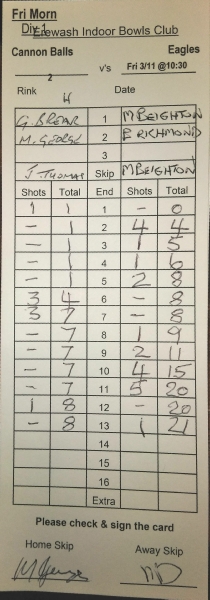 Fri Morn
Div 1 Erewash Indoor Bowls Club
Cannon Balls Eagles
2 v's Fri 3/11 @10:30
Rink Date
H
G. BREAR 1 M BEIGHTON
M. GEORGE 2 P RICHMOND
3
J. THOMAS Skip M BEIGHTON
Shots Total End Shots Total
1 1 1 - 0
- 1 2 4 4
- 1 3 1 5
- 1 4 1 6
- 1 5 2 8
3 4 6 - 8
3 7 7 - 8
- 7 8 1 9
- 7 9 2 11
- 7 10 4 15
- 7 11 5 20
1 8 12 - 20
- 8 13 1 21
14
15
16
Extra
Please check & sign the card
Home Skip Away Skip